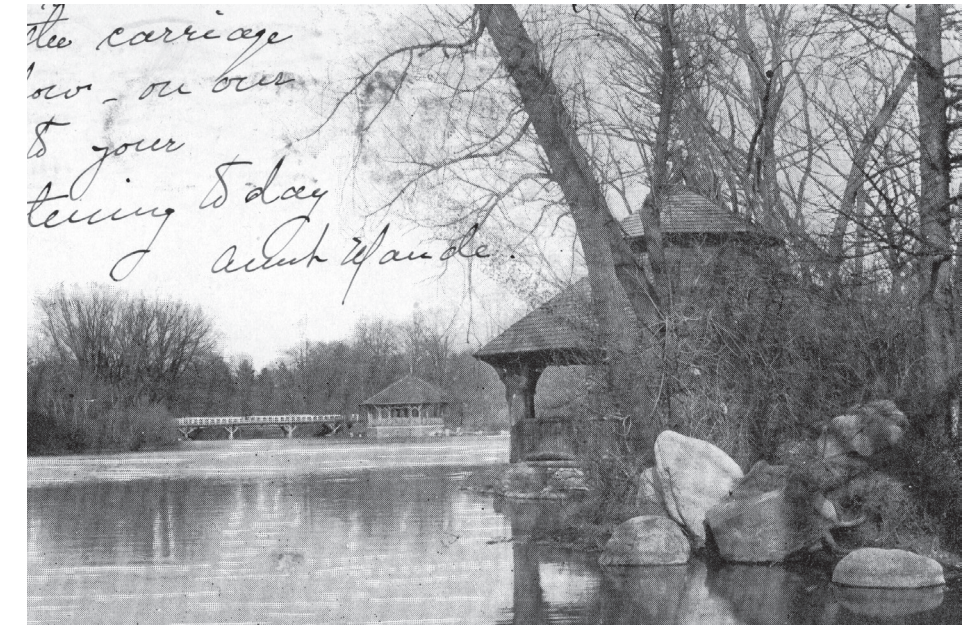 the carriage
ow - on our
to your
tening today
aunt Maude.